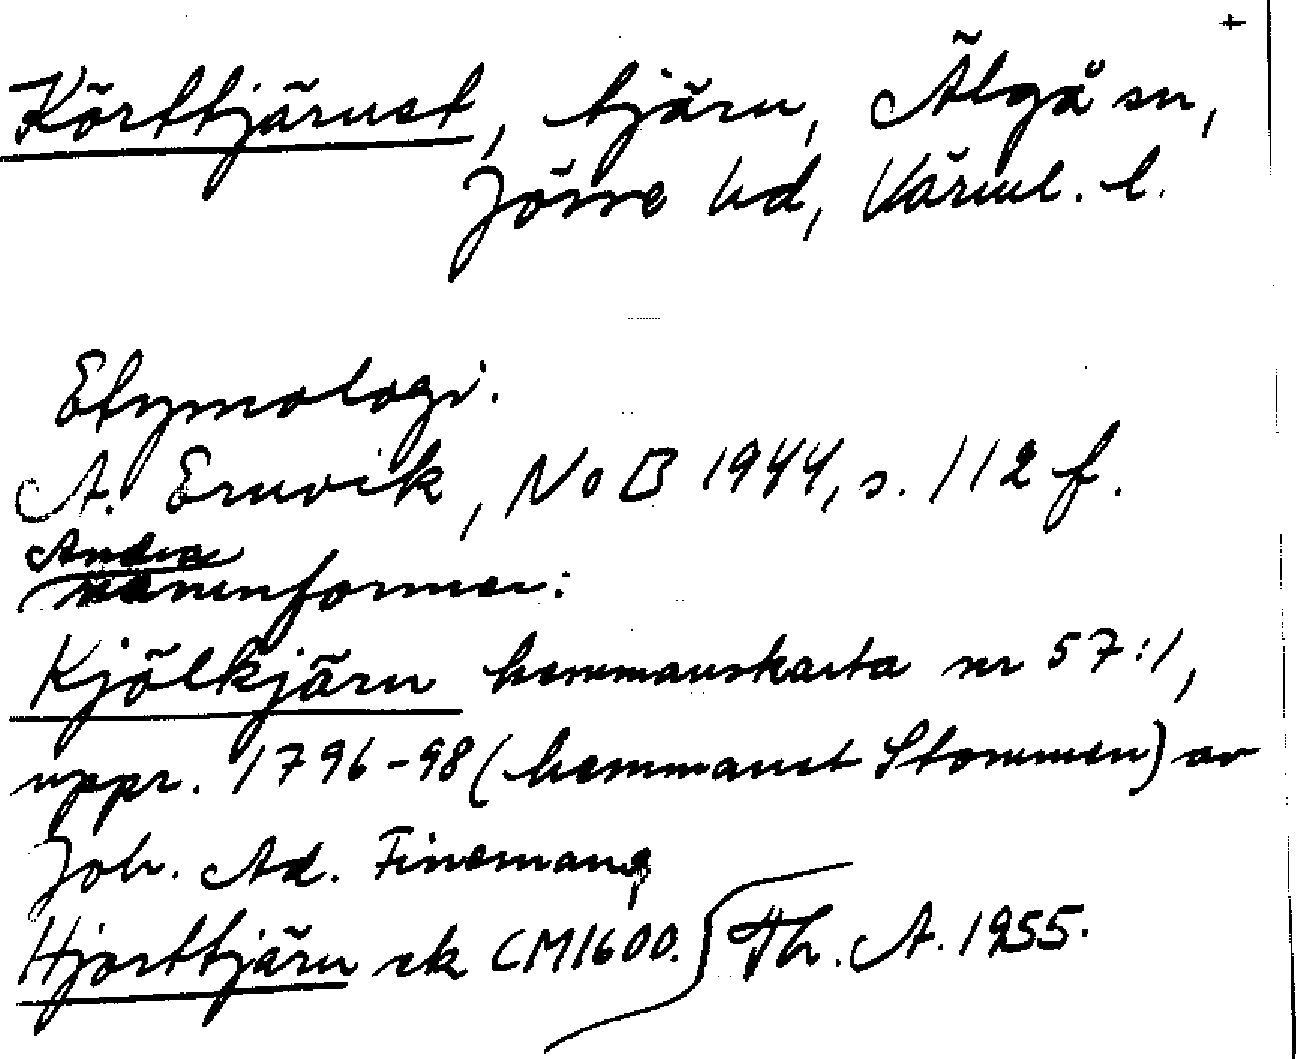 +
Körttjärnet, tjärn, Älgå sn,
Jösse hd, Värml. l.
Etymologi.
A. Ernvik, NoB 1944, s. 112 f.
Andra
namnformer:
Kjölkjärn hemmanskarta nr 57:1,
uppr. 1796-98 (hemmanet Stommen) av
Joh. Ad. Fineman,
Hjorttjärn ek CM1600. Th. A. 1955.